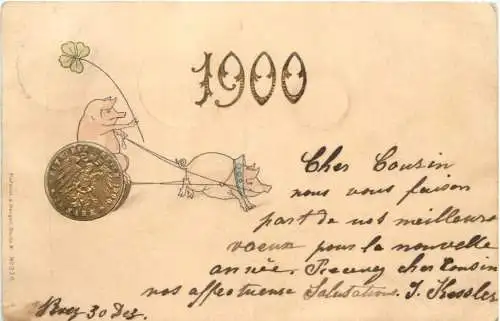 1900
Cher Cousin
nous vous faison
part de nos meilleurs
voeux pour la nouvelle
année. Recevez cher Cousin
nos affectueuse Salutations. J. Kessler
30 Dez.